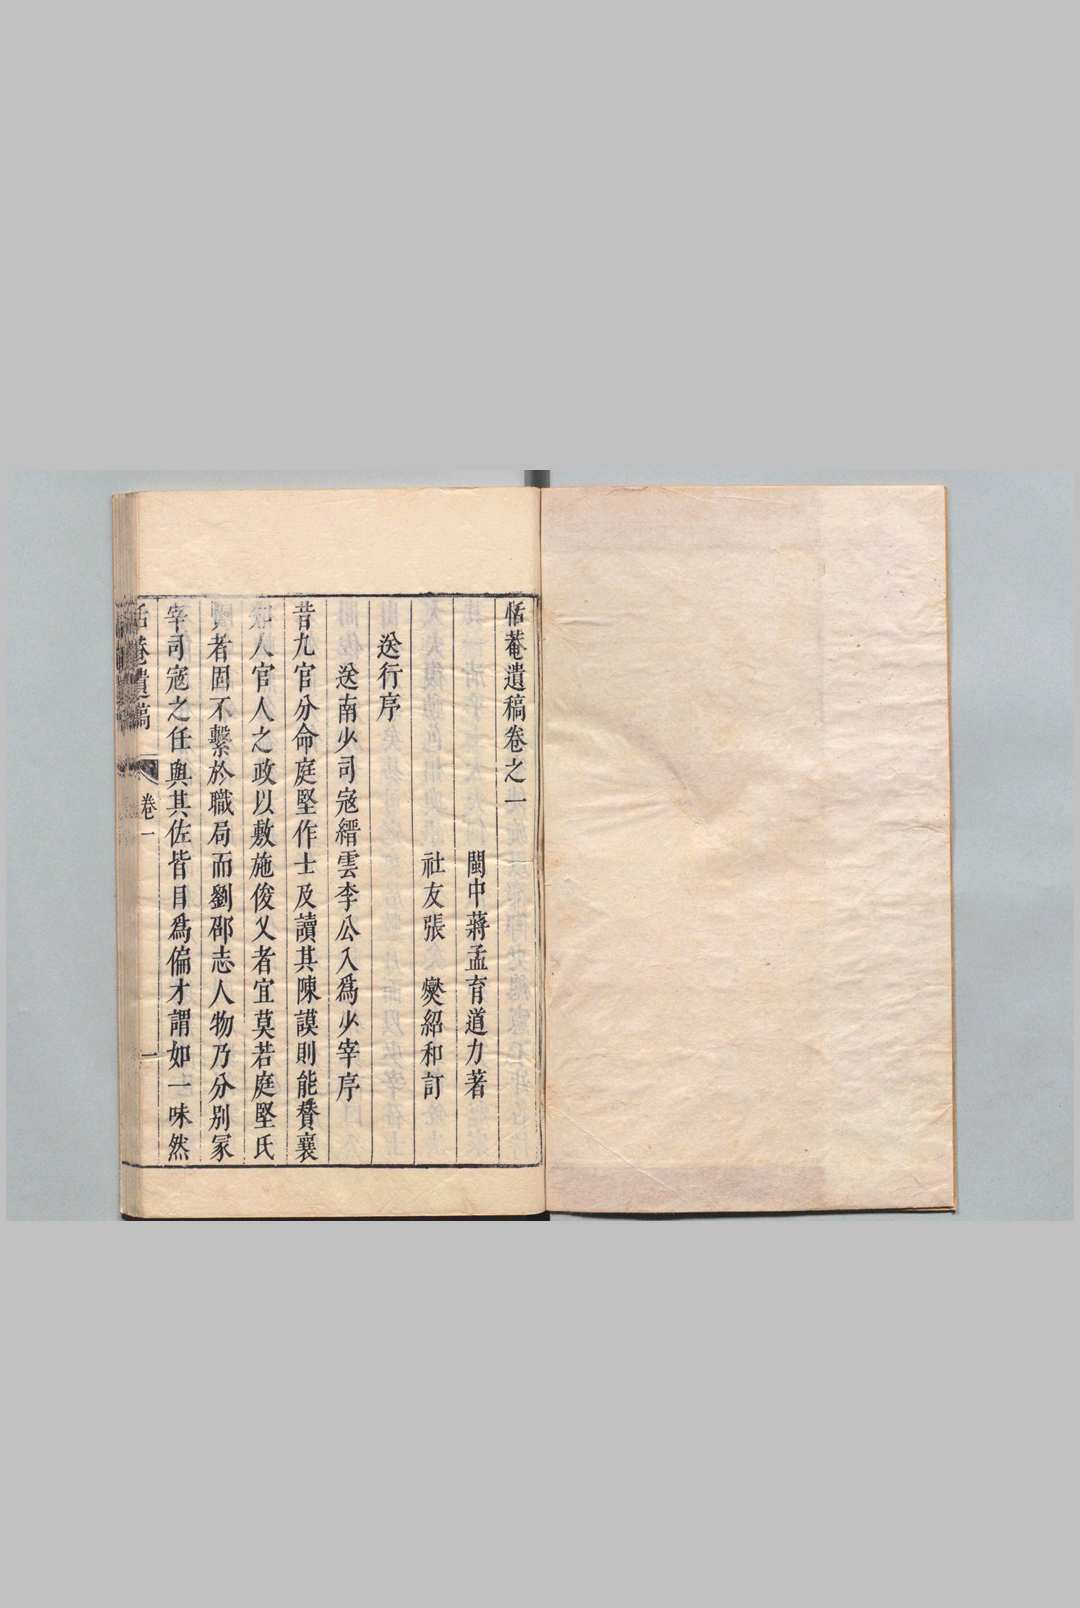 恬菴遺稿卷之一
閩中蔣孟育道力著
社友張 爕紹和訂
送行序
送南少司寇縉雲李公入爲少宰序
昔九官分命庭堅作士及讀其陳謨則能賛襄
人官人之政以敷施俊乂者宜莫若庭堅氏
者固不繫於職局而劉邵志人物乃分别冢
宰司寇之任與其佐皆目爲偏才謂如一味然
恬菴遺稿 卷一 一